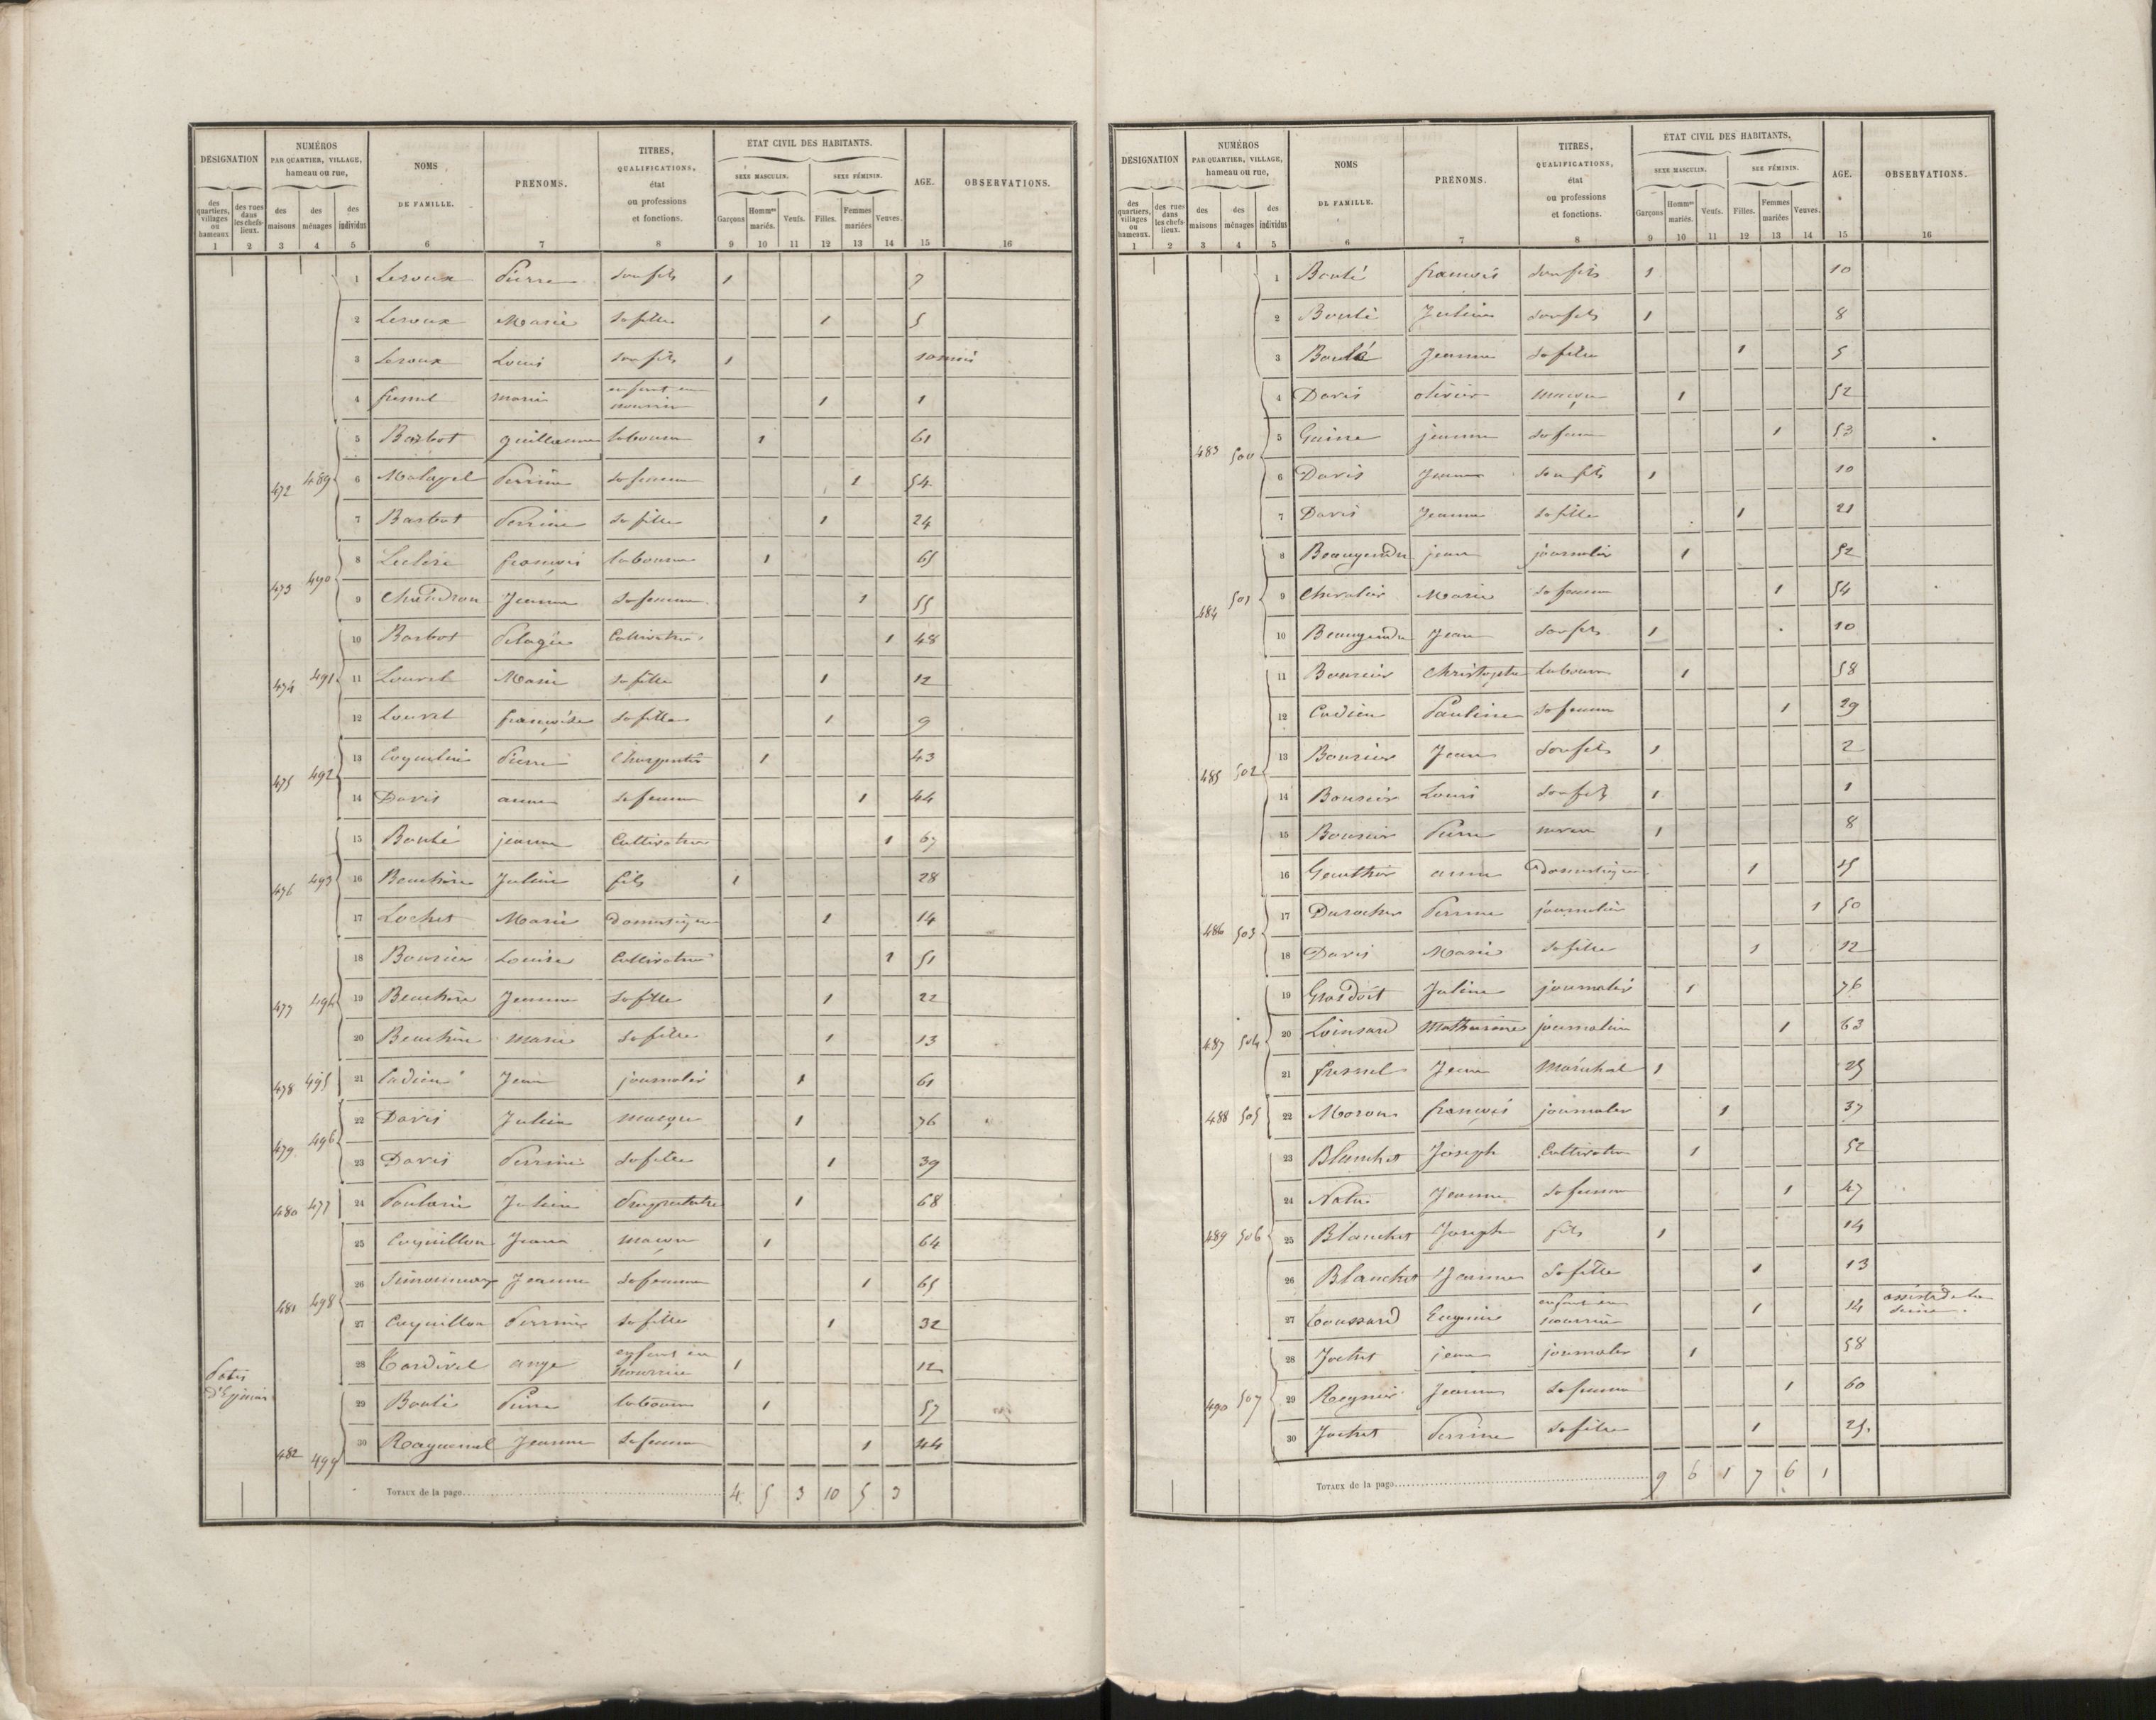 DÉSIGNATION
des quartiers, villages ou hameaux
des rues dans les chefs-lieux.
NUMÉROS
PAR QUARTIER, VILLAGE,
hameau ou rue,
des maisons
des ménages
des individus
NOMS
DE FAMILLE.
PRÉNOMS.
TITRES,
QUALIFICATIONS,
état
ou professions
et fonctions.
ÉTAT CIVIL DES HABITANTS.
SEXE MASCULIN.
SEXE FÉMININ.
Garçons
Hommes mariés.
Veufs.
Filles.
Femmes mariées
Veuves.
AGE.
OBSERVATIONS.
1 2 3 4 5 6 7 8 9 10 11 12 13 14 15 16
1 Leroux Pierre son fils 1 7
2 Leroux Marie sa fille 1 5
3 Leroux Louis son fils 1 10 mois
4 fresnel marie enfant en nourrice 1 1
472 489
5 Barbot guillaume laboureur 1 61
6 Malapel Perrine sa femme 1 54
7 Barbot Perrine sa fille 1 24
473 490
8 françois laboureur 1 65
9 Chaudron Jeanne sa femme 1 55
474 491
10 Barbot Pelagie Cultivatrice 1 48
11 Louvel Marie sa fille 1 12
12 Louvel françoise sa fille 1 9
475 492
13 Coquelin Pierre Charpentier 1 43
14 Davis anne sa femme 1 44
476 493
15 Boulé jeanne Cultivatrice 1 67
16 Julien fils 1 28
17 Lochet Marie Domestique 1 14
477 494
18 Boursier Louise Cultivatrice 1 51
19 Jeanne sa fille 1 22
20 marie sa fille 1 13
478 495
21 Cadieu Jean journalier 1 61
479 496
22 Davis Julien maçon 1 76
23 Davis Perrine sa fille 1 39
480 497
24 Poulain Julien Propriétaire 1 68
481 498
25 Coquillon Jean maçon 1 64
26 Simonneaux Jeanne sa femme 1 65
27 Coquillon Perrine sa fille 1 32
28 Tardivel ange enfant en nourrice 1 12
482 499
29 Boulé Pierre laboureur 1 57
30 Raguenel Jeanne sa femme 1 44
TOTAUX de la page 4 5 3 10 5 3
DÉSIGNATION
des quartiers, villages ou hameaux.
des rues dans les chefs-lieux.
NUMÉROS
PAR QUARTIER, VILLAGE,
hameau ou rue,
des maisons
des ménages
des individus
NOMS
DE FAMILLE.
PRÉNOMS.
TITRES,
QUALIFICATIONS,
état
ou professions
et fonctions.
ÉTAT CIVIL DES HABITANTS.
SEXE MASCULIN.
SEXE FÉMININ.
Garçons
Hommes mariés.
Veufs.
Filles.
Femmes mariées
Veuves.
AGE.
OBSERVATIONS.
1 2 3 4 5 6 7 8 9 10 11 12 13 14 15 16
1 Boulé françois son fils 1 10
2 Boulé Julien son fils 1 8
3 Boulé Jeanne sa fille 1 5
483 500
4 Davis olivier maçon 1 52
5 jeanne sa femme 1 53
6 Davis son fils 1 10
7 Davis Jeanne sa fille 1 21
484 501
8 Beaugendre jean journalier 1 52
9 Chevalier Marie sa femme 1 54
10 Beaugendre Jean son fils 1 10
485 502
11 Boursier Christophe laboureur 1 58
12 Cadieu Pauline sa femme 1 29
13 Boursier Jean son fils 1 2
14 Boursier Louis son fils 1 1
15 Boursier Pierre neveu 1 8
16 Gauthier anne Domestique 1 15
486 503
17 Durocher Perrine journalière 1 50
18 Davis Marie sa fille 1 12
487 504
19 Grosdoit Julien journalier 1 76
20 Loinsard Mathurine journalière 1 63
21 fresnel Jean Maréchal 1 25
488 505
22 françois journalier 1 37
489 506
23 Blanchet Joseph Cultivateur 1 52
24 Jeanne sa femme 1 47
25 Blanchet Joseph fils 1 14
26 Blanchet Jeanne sa fille 1 13
27 Toussard Eugénie enfant en nourrice 1 14 assisté de la Seine.
490 507
28 Jochet jean journalier 1 58
29 Regnier Jeanne sa femme 1 60
30 Jochet Perrine sa fille 1 25.
TOTAUX de la page 9 6 1 7 6 1